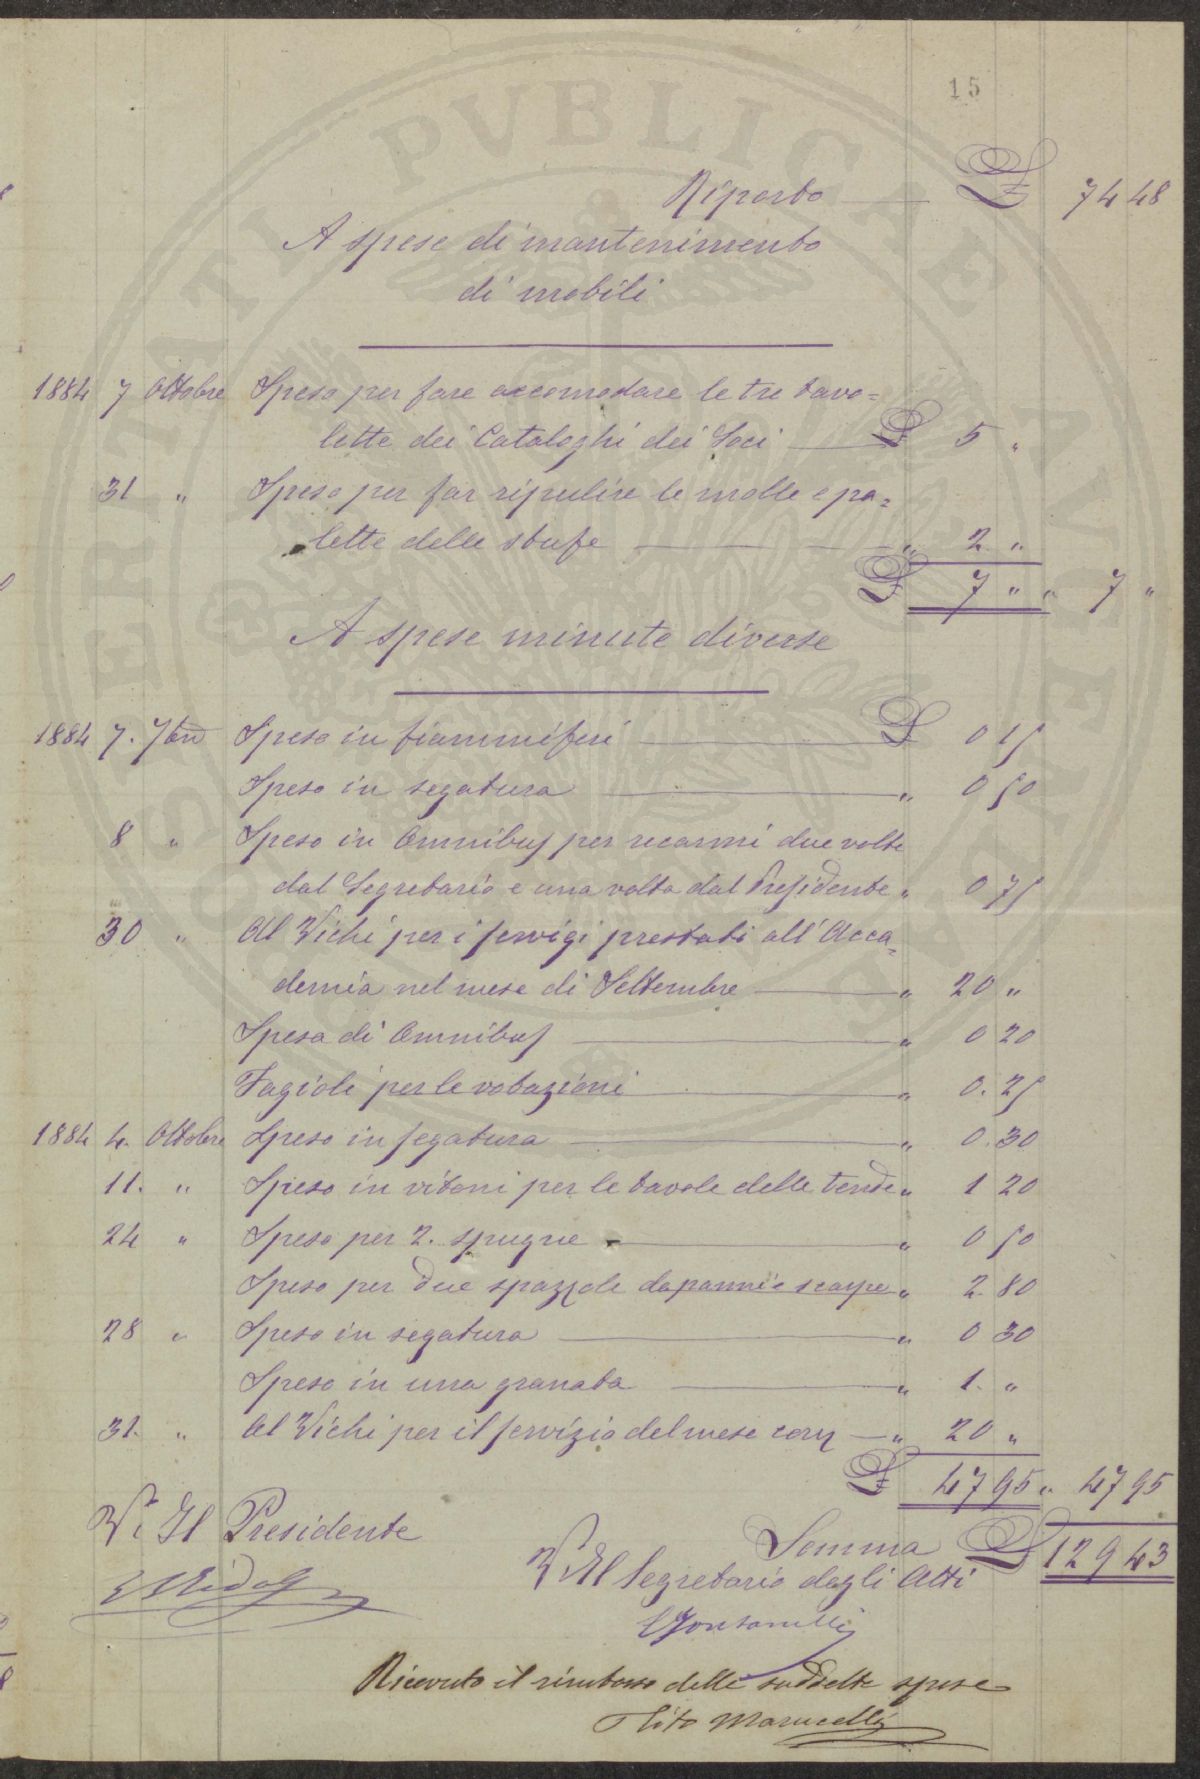 15
Riporto £ 74 48
A spese di mantenimento
di mobili
1884 7 Ottobre Speso per fare accomodare le tre tavo=
lette dei Cataloghi dei Soci £ 5 "
31 " Speso per far ripulire le molle e pa=
lette delle stufe " 2 "
£ 7 " " 7 "
A spese minute diverse
1884 7. 7bre Speso in fiammiferi £ 0 15
Speso in segatura " 0 50
8 " Speso in Omnibus per recarmi due volte
dal Segretario e una volta dal Presidente " 0 75
30 " Al Vichi per i servigi prestati all'Acca=
demia nel mese di Settembre " 20 "
Spesa di Omnibus " 0 20
Fagioli per le votazioni " 0. 25
1884 4. Ottobre Speso in segatura " 0. 30
11. " Speso in vitoni per le tavole delle tende " 1 20
24 " Speso per 2. spugne " 0 50
Speso per due spazzole da panni e scarpe " 2. 80
28 " Speso in segatura " 0 30
Speso in una granata " 1. "
31. " Al Vichi per il servizio del mese corr " 20 "
£ 47 95 " 47 95
Vo Il Presidente
Somma £ 129 43
V Il Segretario degli Atti
Ricevuto il rimborso delle suddette spese
Tito Marucelli
PVBLICAE